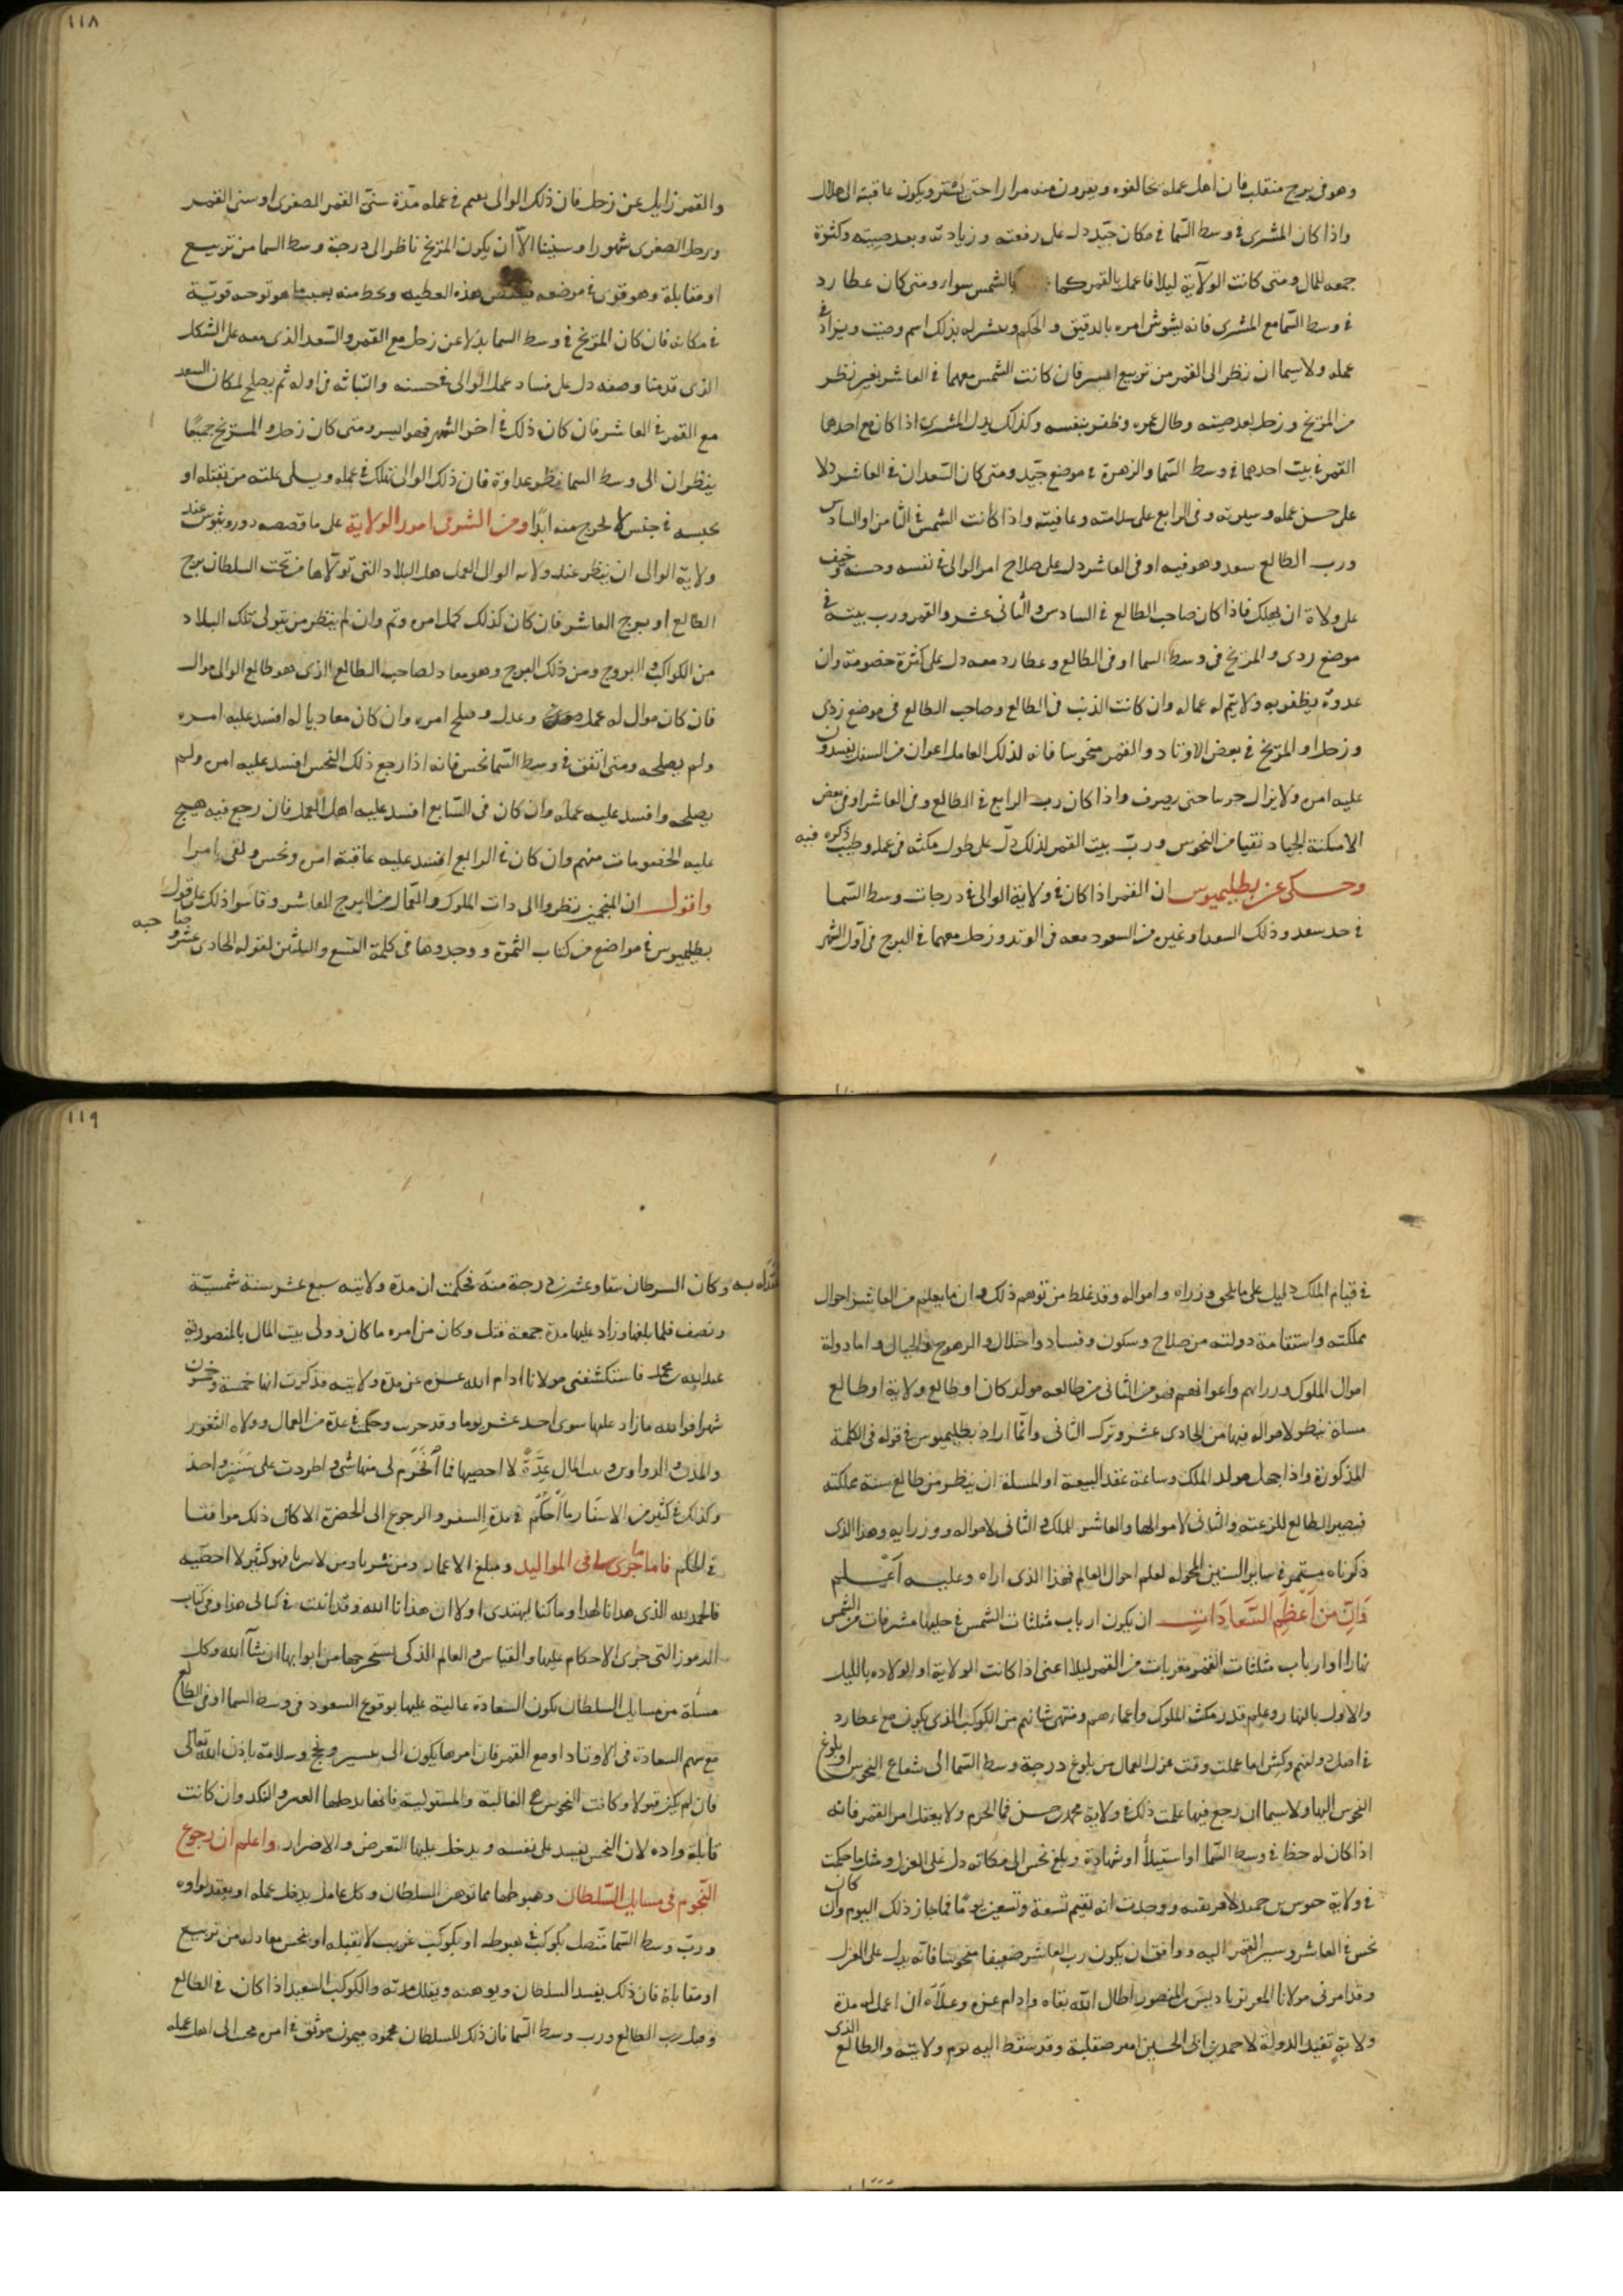 ١١٨
وهو في برج منقلب فان اهل عمله يخالفوه ويفرون منه مرارا حتى يشتر ويكون عاقبته الى هلال
واذا كان المشترى في وسط السما في مكان جيد دل على رفعته وزيادته وبعد صيته وكثرة
جمعه للمال ومتى كانت الولاية ليلا فاعمل بالقمر كما بالشمس سوا ومتى كان عطارد
في وسط السما مع المشترى فانه يشوش امره بالدقيق والحكم وينشر له بذلك اسم وصيت ويزاد في
عمله ولا سيما ان نظر الى القمر من تربيع ايسر فان كانت الشمس معهما في العاشر بغير نظر
من المريخ وزحل بعد صيته وطال عمره وظفر بنفسه وكذلك يدل المشترى اذا كان مع احدهما
القمر في بيت احدهما في وسط السما والزهرة في موضع جيد ومتى كان السعدان في العاشر دلا
على حسن عمله وسيرته وفي الرابع على سلامته وعافيته واذا كانت الشمس في الثامن او السادس
ورب الطالع سعد وهو فيه او في العاشر دل على صلاح امر الوالى في نفسه وحسنه وخيف
على ولاة ان يهلك فاذا كان صاحب الطالع في السادس والثانى عشر والقمر ورب بيته في
موضع ردى والمريخ في وسط السما او في الطالع وعطارد معه دل على كثرة خصومته وان
عدوه يظفر به ولا يتم له عماله وان كانت الذنب في الطالع وصاحب الطالع في موضع ردى
وزحل او المريخ في بعض الاوتاد والقمر منحوسا فانه لذلك العامل اعوان من السفل يفسدون
عليه امره ولا يزال حتى يصرف واذا كان رب الرابع في الطالع وفي العاشر او في بعض
الامكنة الجياد نقيا من النحوس ورب بيت القمر لذلك دل على طول مكثه في عمله وطيب ذكره فيه
وحكى عن بطليميوس ان القمر اذا كان في ولاية الوالى في درجات وسط السما
في حد سعد وذلك السعد او غيره من السعود معه في الوتد وزحل معهما في البرج في اول الشهر
والقمر زايل عن زحل فان ذلك الوالى يعم في عمله مدة سنى القمر الصغرى او سنى القمر
وزحل الصغرى شهورا وسنينا الا ان يكون المريخ ناظر الى درجة وسط السما من تربيع
او مقابلة وهو قوى في موضعه فينقص هذه العطيه ويحط منه بحسب ما هو توجبه قوته
في مكانه فان كان المريخ في وسط السما بدلا عن زحل مع القمر والسعد الذى معه على الشكل
الذى قدمنا وصفه دل على فساد عمل الوالى في حسنه والتباثه في اوله ثم يصلح لمكان السعد
مع القمر في العاشر فان كان ذلك في اخر الشهر فهو ايسر ومتى كان زحل والمريخ جميعا
ينظران الى وسط السما نظر عداوة فان ذلك الوالى يهلك في عمله ويسلى علته من يقتله او
يحبسه في حبس لا يخرج منه ابدا ومن الشوس في امور الولاية على ما قصصه دوروثيوس عند
ولاية الوالى ان ينظر عند ولايه الوالى العمل هل البلاد التى تولاها من تحت السلطان برج
الطالع او برج العاشر فان كان كذلك كمل امره وتم وان لم ينظر من يتولى تلك البلاد
من الكواكب والبروج ومن ذلك البرج وهو معاد لصاحب الطالع الذى هو طالع الوالى موال
فان كان موال له عمل وعدل وصلح امره وان كان معاديا له افسد عليه امره
ولم يصلحه ومتى اتفق في وسط السما نحس فانه اذا رجع ذلك النحس افسد عليه امره ولم
يصلحه وافسد عليه عمله وان كان في السابع افسد عليه اهل العمل فان رجع فيه هيج
عليه الخصومات منهم وان كان في الرابع افسد عليه عاقبة امره ونحس ولقى امرا
واقول ان المنجمين نظروا الى دات الملوك والعمال من البرج العاشر وقاسوا ذلك على قول
بطليميوس في مواضع من كتاب الثمرة ووجدوها في كلمة التسع والثلثين لقوله الحادى عشر
١١٩
في قيام الملك دليل على ما يلحق وزراه وامواله وقد غلط من توهم ذلك وان ما يعلم من العاشر احوال
مملكته واستقامة دولته من صلاح وسكون وفساد واختلال والرهوج والجبال واما دولة
اموال الملوك وزرايهم واعوانهم فهو من الثانى من طالعه مولد كان او طالع ولاية او طالع
مسلة ينظر لامواله فيها من الحادى عشر وترك الثانى وانما اراد بطليميوس في قوله في الكلمة
المذكورة واذا جهل مولد الملك وساعة عقد البيعة او المسلة ان ينظر من طالع سنة مملكته
فيصير الطالع للرعية والثانى لاموالها والعاشر للملك والثانى لامواله ووزرايه وهذا الذى
ذكرناه مستمر في ساير السنين المحوله لعلم احوال العالم فهذا الذى اراه وعليه اعلم
وان من اعظم السعادات ان يكون ارباب مثلثات الشمس في حليها مشرقات من الشمس
نهارا او ارباب مثلثات القمر مغربات من القمر ليلا اعنى اذا كانت الولاية او الولاده بالليل
والاول بالنهار وعلم قدر مكث الملوك واعمارهم ومنتهى شانهم من الكوكب الذى يكون مع عطارد
في اصل دولتهم وكثيرا ما عملت وقت عزل العمال من بلوغ درجة وسط السما الى شعاع النحوس او بلوغ
النحوس اليها ولا سيما ان رجع فيها عملت ذلك في ولاية محمد بن حسن فما انخرم ولا يغفل امر القمر فانه
اذا كان له حظ في وسط السما او استيلا او شهادة وبلغ نحس الى مكانه دل على العزل ومثله ما حكمت
في ولاية حوس بن حميد لافريقيه ووجدت انه يقيم تسعة وتسعين يوما فما جاز ذلك اليوم وان كان
نحس في العاشر وسير القمر اليه ووافق ان يكون رب العاشر ضعيفا منحوسا فانه يدل على العزل
وقد امرنى مولانا المعز بن باديس بن المنصور اطال الله بقاه وادام عزه وعلاه ان اعمل له مدة
ولاية تقيد الدولة لاحمد بن ابى الحسين امير صقلية وقد سقط اليه يوم ولايته والطالع الذى
تقلد به وكان السرطان ستا وعشرين درجة منه فحكمت ان مدة ولايته سبع عشر سنة شمسية
ونصف فلما بلغها وزاد عليها مدة جمعة قتل وكان من امره ما كان وولى بيت المال بالمنصورية
عبد الله بن محمد فاستكشفنى مولانا ادام الله عزه عن مدة ولايته فذكرت انها خمسة وخمسون
شهرا فوالله ما زاد عليها سوى احد عشر يوما وقد جرب وحكمت في عدة من العمال وولاه الثغور
والمدن والدواوين وبيت المال عدة لا احصيها فما انخرم لى منها شى واطردت على سنن واحد
وكذلك في كثير من الاسفار ما احكم في مدة السفر والرجوع الى الحضرة الا كان ذلك موافقا
في الحكم فاما ما جرى لى في المواليد ومبلغ الاعمار فهو كثير لا احصيه
فالحمد لله الذى هدانا لهذا وما كنا لنهتدى لولا ان هدانا الله وقد اثبت في كتابى هذا وفي كتاب
الرموز التى جرى الاحكام عليها والقياس والعالم الذكى يستخرجها من ابوابها ان شآ الله وكل
مسلة من مسايل السلطان يكون السعادة عالية عليها بوقوع السعود في وسط السما او في الطالع
مع سهم السعادة في الاوتاد او مع القمر فان امرها يكون الى يسير ونجح وسلامة باذن الله تعالى
فان لم يكن قبولا وكانت النحوس هى الغالبة والمستولية فانها يدخلها العسر والنكد وان كانت
قابلة واده لان النحس يفسد على نفسه ويدخل عليها التعرض والاضرار واعلم ان رجوع
النجوم في مسايل السلطان وهبوطها مما توهن السلطان وكل عامل يدخل عمله او يعقد لواوه
ورب وسط السما متصل بكوكب في هبوطه او بكوكب غريب لا يقبله او نحس معادله من تربيع
او مقابلة فان ذلك يفسد السلطان ويوهنه ويقلل مدته والكوكب السعيد اذا كان في الطالع
وقبل رب الطالع ورب وسط السما فان ذلك للسلطان محمود ميمون موثق في امره محب الى اهل عمله